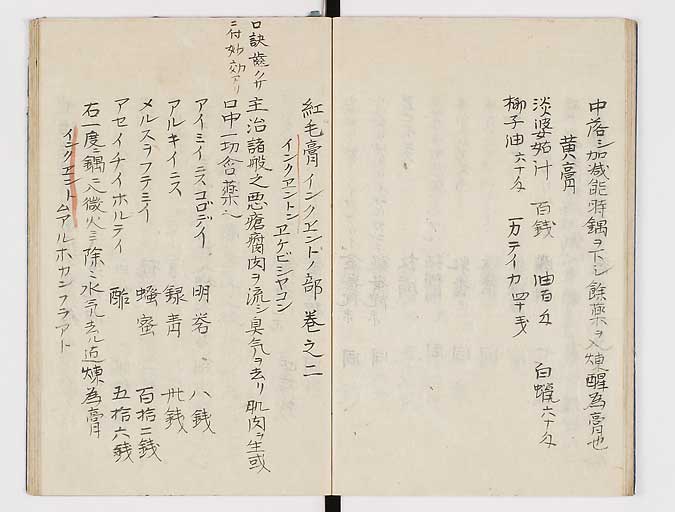 中落シ加減能時鍋ヲ下シ餘薬ヲ入煉醒為膏也
黄膏
淡婆姑汁 百銭 油百匁 白蠟六十匁
椰子油六十匁 マンテイカ四十戔
紅毛膏インクヱントノ部 巻之二
インクヱントン ヱケビシヤコン
主治諸般之悪瘡腐肉ヲ流シ臭気ヲ去リ肌肉ヲ生或
口中一切含薬ニ
口訣齒
ニ付妙効アリ
アイミイニスコロデイ 明礬 八銭
アルキイニス 録青 卅銭
メルスラフテミイ 蜂蜜 百拾二銭
アセイチイホルテイ 酢 五拾六銭
右一度ニ鍋ニ入微火ニ除ニ水気去ル迠煉為膏
インクヱントムアルホカンフラアト